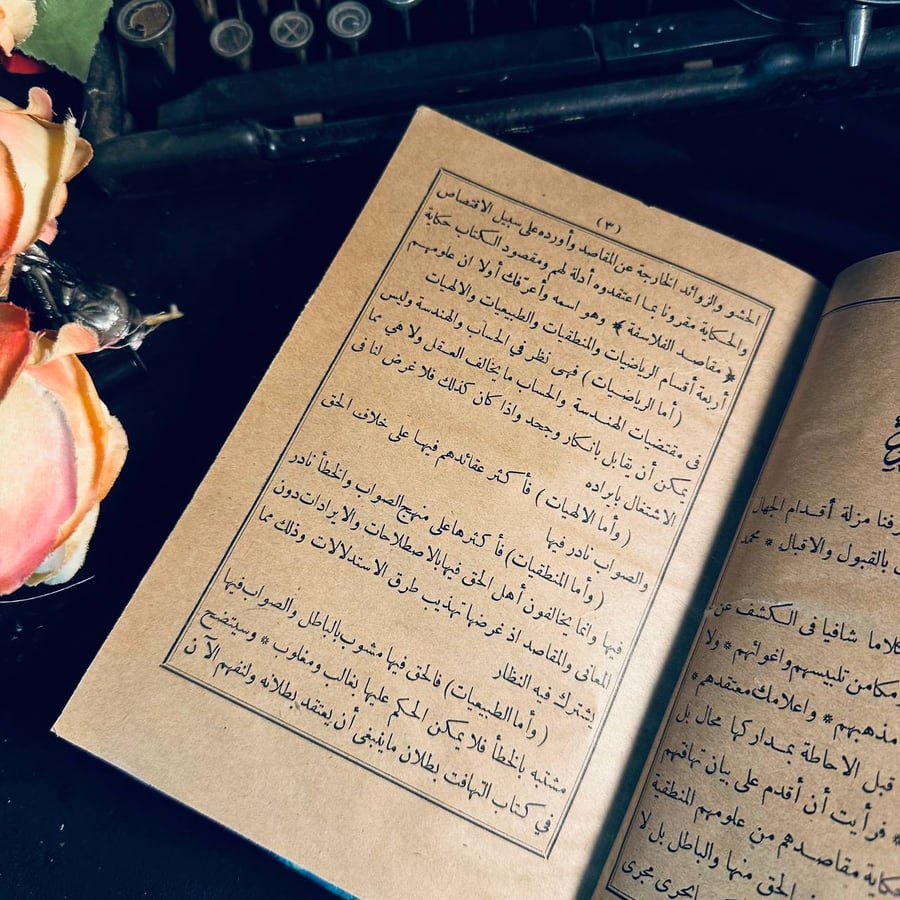 مزلة أقدام الجهال
بالقبول والاقبال * محمد
كلاما شافيا فى الكشف عن
ومكامن تلبيسهم واغوائهم * ولا
مذهبهم * واعلامك معتقدهم *
قبل الاحاطة بمداركها محال بل
* فرأيت أن أقدم على بيان تهافتهم
حكاية مقاصدهم من علومهم المنطقية
الحق منها والباطل بل لا
مجرى
(٣)
الحشو والزوائد الخارجة عن المقاصد وأورده على سبيل الاقتصاص
والحكاية مقرونا بما اعتقدوه أدلة لهم ومقصود الكتاب حكاية
﴿ مقاصد الفلاسفة ﴾ وهو اسمه وأعرّفك أولا ان علومهم
أربعة أقسام الرياضيات والمنطقيات والطبيعيات والالهيات
( أما الرياضيات ) فهى نظر في الحساب والهندسة وليس
فى مقتضيات الهندسة والحساب ما يخالف العقل ولا هي مما
يمكن أن يقابل بانكار وجحد واذا كان كذلك فلا غرض لنا فى
الاشتغال بايراده
( وأما الالهيات ) فأكثر عقائدهم فيها على خلاف الحق
والصواب نادر فيها
( وأما المنطقيات) فأكثرها على منهج الصواب والخطأ نادر
فيها وانما يخالفون أهل الحق فيها بالاصطلاحات والايرادات دون
المعانى والمقاصد اذ غرضها تهذيب طرق الاستدلالات وذلك مما
يشترك فيه النظار
( وأما الطبيعيات) فالحق فيها مشوب بالباطل والصواب فيها
مشتبه بالخطأ فلا يمكن الحكم عليها بغالب ومغلوب * وسيتضح
في كتاب التهافت بطلان ماينبغى أن يعتقد بطلانه ولنفهم الآن